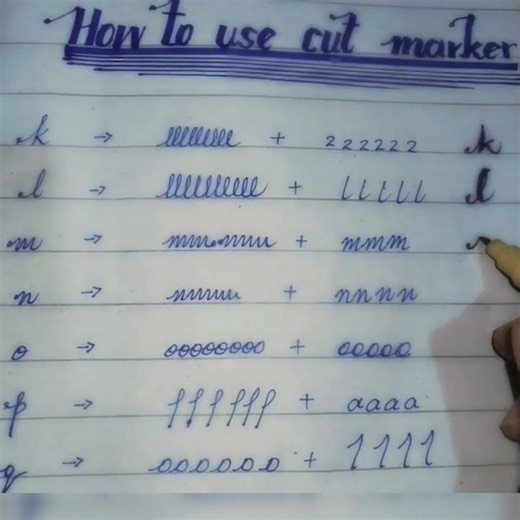 How to use cut marker
k → lllllllll + 222222 k
l → llllllllll + lllll l
m → mmmmmm + mmm
n → nnnnn + nnnn
o → oooooooo + ooooo
p → ffffff + aaaa
q → oooooo + 1111